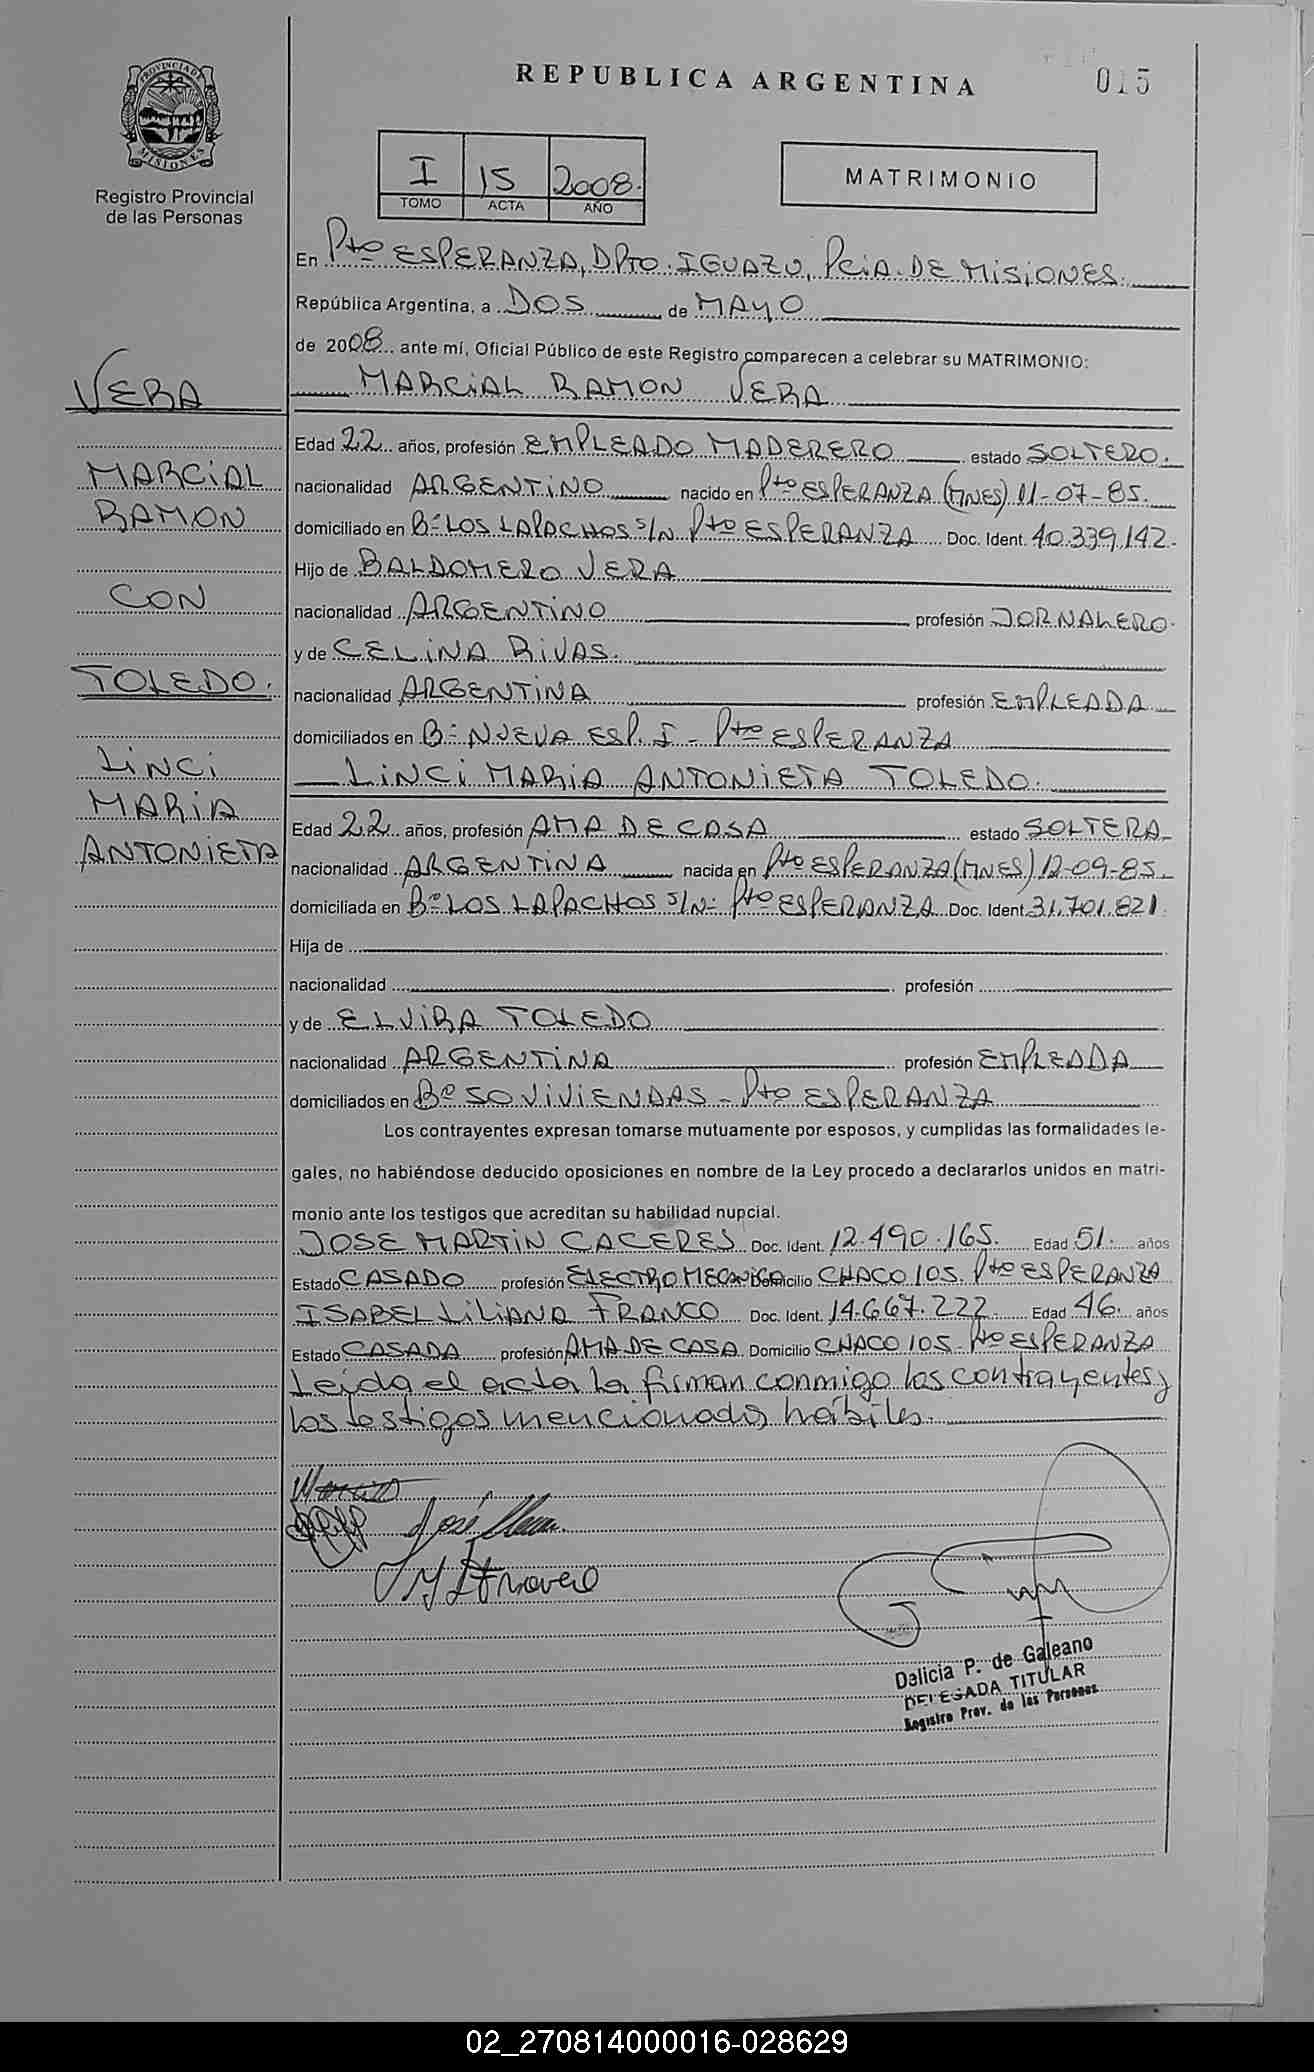 REPUBLICA ARGENTINA
015
PROVINCIA DE MISIONES
Registro Provincial
de las Personas
I 15 2008.
TOMO ACTA AÑO
MATRIMONIO
En Pto ESPERANZA, DPTO. IGUAZU, PCiA. DE MiSiONES.
República Argentina, a DOS de MAYO
de 2008 ante mí, Oficial Público de este Registro comparecen a celebrar su MATRIMONIO:
MARCiAL RAMON VERA
VERA
MARCiAL
RAMON
CON
TOLEDO.
LiNCi
MARiA
ANTONiETA
Edad 22 años, profesión EMPLEADO MADERERO estado SOLTERO.
nacionalidad ARGENTiNO nacido en Pto ESPERANZA (MNES) 11-07-85.
domiciliado en Bº LOS LAPACHOS S/N Pto ESPERANZA Doc. Ident. 40.339.142.
Hijo de BALDOMERO VERA
nacionalidad ARGENTiNO profesión JORNALERO.
y de CELiNA RiVAS.
nacionalidad ARGENTiNA profesión EMPLEADA
domiciliados en Bº NUEVA ESP. I - Pto ESPERANZA
LiNCi MARiA ANTONiETA TOLEDO.
Edad 22 años, profesión AMA DE CASA estado SOLTERA
nacionalidad ARGENTiNA nacida en Pto ESPERANZA (MNES) 12-09-85.
domiciliada en Bº LOS LAPACHOS S/Nº Pto ESPERANZA Doc. Ident. 31.701.821.
Hija de
nacionalidad profesión
y de ELViRA TOLEDO
nacionalidad ARGENTiNA profesión EMPLEADA
domiciliados en Bº 50 ViViENDAS - Pto ESPERANZA
Los contrayentes expresan tomarse mutuamente por esposos, y cumplidas las formalidades le-
gales, no habiéndose deducido oposiciones en nombre de la Ley procedo a declararlos unidos en matri-
monio ante los testigos que acreditan su habilidad nupcial.
JOSE MARTiN CACERES Doc. Ident. 12.490.165. Edad 51. años
Estado CASADO profesión ELECTROMECANiCO Domicilio CHACO 105. Pto ESPERANZA
ISABEL LiLiANA FRANCO Doc. Ident. 14.667.222. Edad 46. años
Estado CASADA profesión AMA DE CASA Domicilio CHACO 105. Pto ESPERANZA
Leida el acta la firman conmigo los contrayentes y
los testigos mencionados hábiles.
José
Dalicia P. de Galeano
DELEGADA TITULAR
Registro Prov. de las Personas
02_270814000016-028629